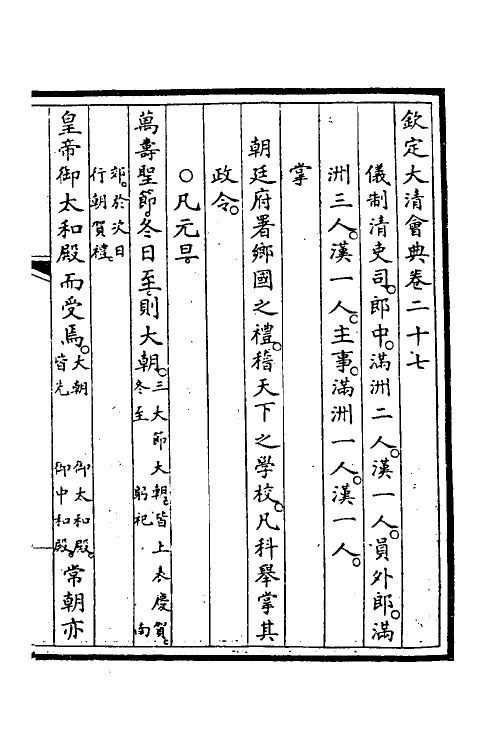 欽定大清會典卷二十七
儀制清吏司。郎中。滿洲二人。漢一人。員外郎。滿
洲三人。漢一人。主事。滿洲一人。漢一人。
掌
朝廷府署鄉國之禮。稽天下之學校。凡科舉掌其
政令。
○凡元旦。
萬壽聖節。冬日至。則大朝。三大節大朝。皆上表慶賀。冬至 躬祀 南
郊。於次日行朝賀禮。
皇帝御太和殿而受焉。大朝 御太和殿。皆先 御中和殿。常朝亦